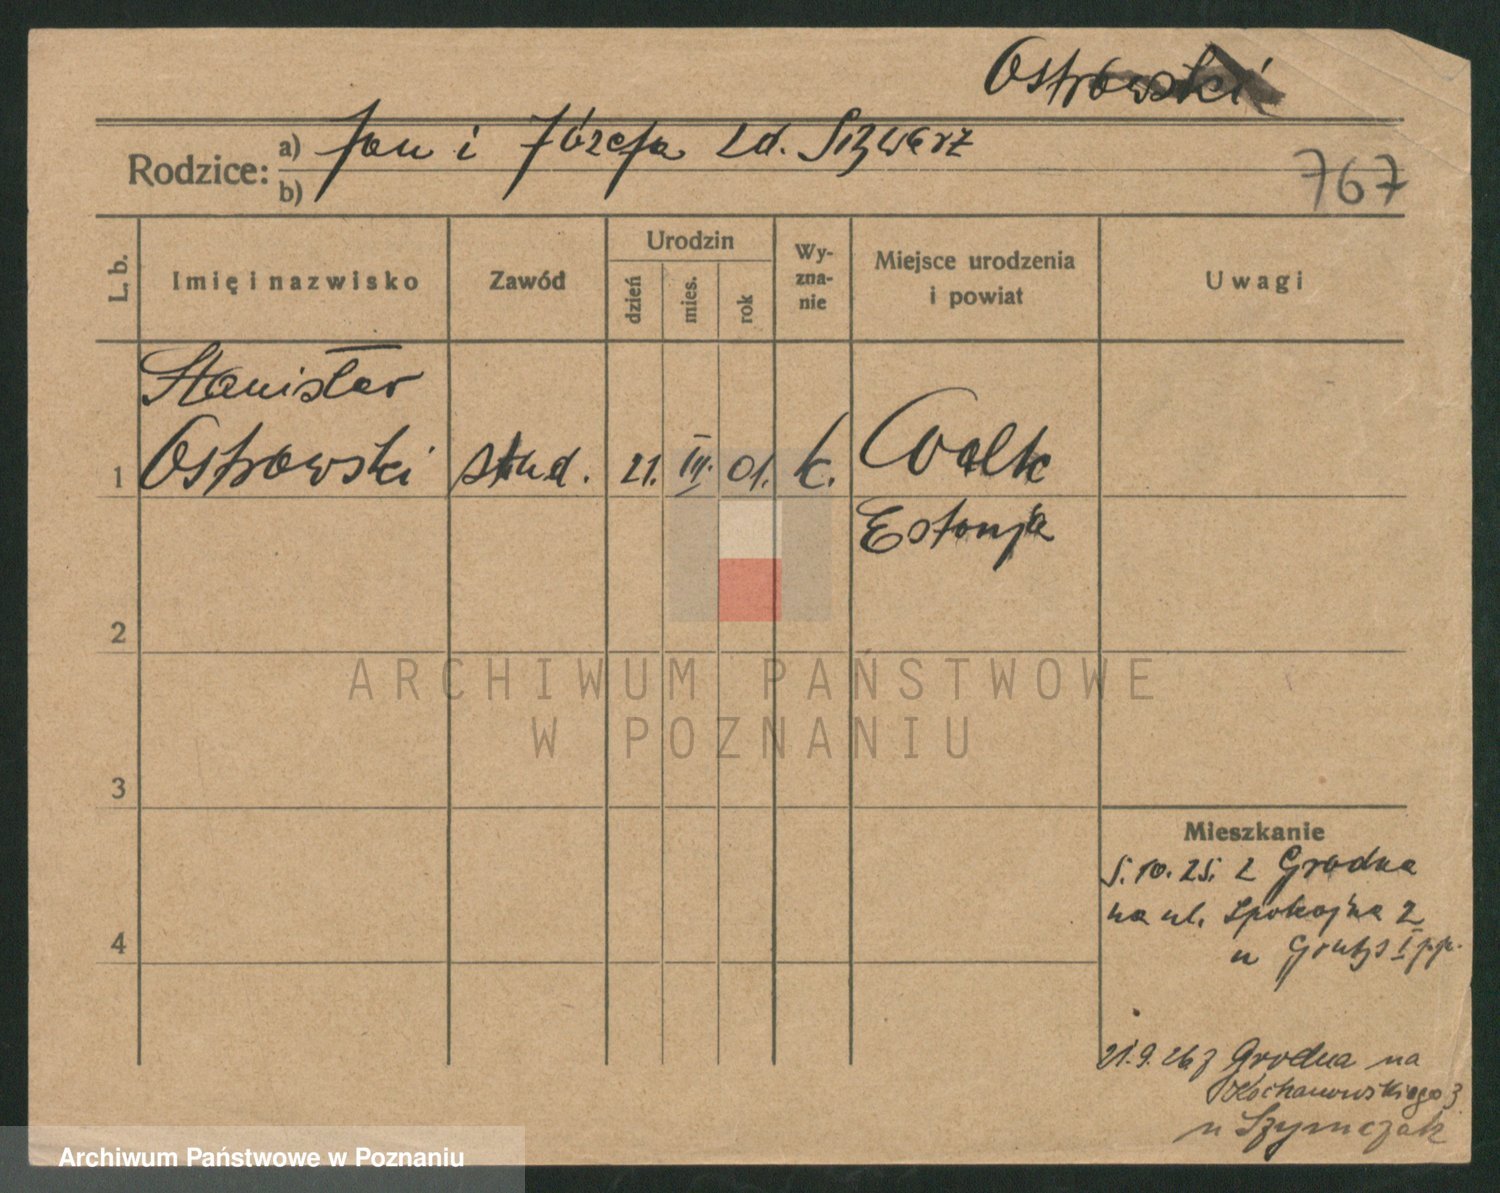 Ostrowski
Rodzice: a) Jan i Józefa zd.
b)
767
L. b.
Imię i nazwisko
Zawód
Urodzin
dzień
mies.
rok
Wy-
zna-
nie
Miejsce urodzenia
i powiat
Uwagi
Stanisław
1 Ostrowski stud. 21. III. 01. k. Walk
Estonja
2
3
4
Mieszkanie
5.10.25. z Grodna
na ul. Spokojna 2
u I p.p.
21.9.26 z Grodna na
Kochanowskiego 3
u Szymczak
ARCHIWUM PAŃSTWOWE
W POZNANIU
Archiwum Państwowe w Poznaniu